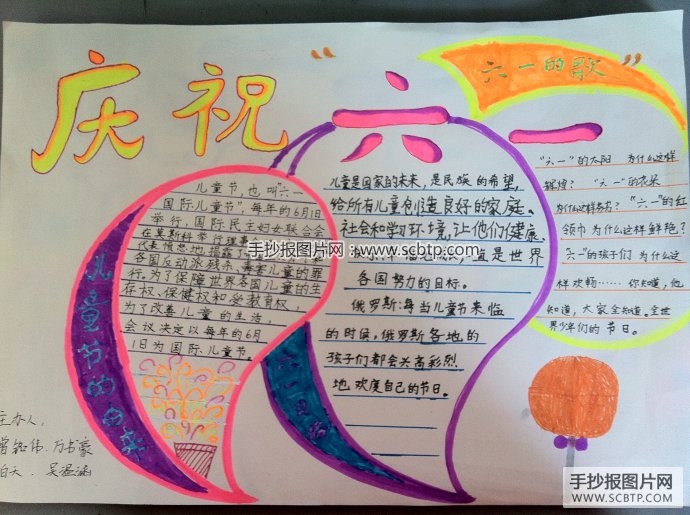 庆祝“六一”
儿童节的由来
儿童节,也叫“六一
国际儿童节”,每年的6月1日
举行,国际民主妇女联合会
在莫斯科举行理事
各国反动派残杀、毒害儿童的罪
行,为了保障世界各国儿童的生
存权、保健权和受教育权,
为了改善儿童的生活,
会议决定以每年的6月
1日为国际儿童节
儿童是国家的未来,是民族的希望,
给所有儿童创造良好的家庭、
社会和学习环境,让他们健康、
直是世界
各国努力的目标。
俄罗斯:每当儿童节来临
的时候,俄罗斯各地的
孩子们都会兴高彩烈
地欢度自己的节日。
六一的歌
“六一”的太阳 为什么这样
辉煌? “六一”的衣朵
为什么这样芬芳? “六一”的红
领巾 为什么这样鲜艳?
“六一”的孩子们 为什么这
样欢畅……你知道,他
知道,大家全知道。全世
界少年们的节日。
主办人:
手抄报图片网:www.scbtp.com
手抄报图片网
WWW.SCBTP.COM